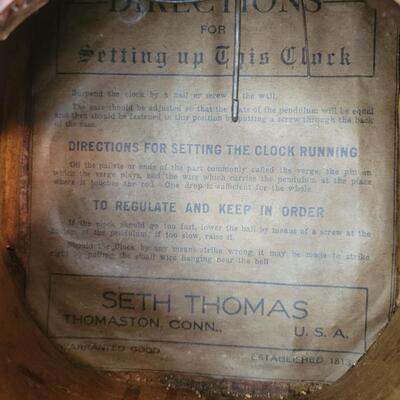 DIRECTIONS
FOR
Setting up This Clock
Suspend the clock by a nail or screw the wall.
The case should be adjusted so that the of the pendulum will be equal
and then should be fastened in this position by putting a screw through the back
of the case.
DIRECTIONS FOR SETTING THE CLOCK RUNNING
Oil the pallets or ends of the part commonly called the verge, the pin on
which the verge plays, and the wire which carries the pendulum at the place
where it touches the rod. One drop is sufficient for the whole.
TO REGULATE AND KEEP IN ORDER
If the clock should go too fast, lower the ball by means of a screw at the
bottom of the pendulum; if too slow, raise it.
Should the Clock by any means strike wrong it may be made to strike
right by pulling the small wire hanging near the bell
SETH THOMAS
THOMASTON, CONN., U. S. A.
WARRANTED GOOD. ESTABLISHED 1813.